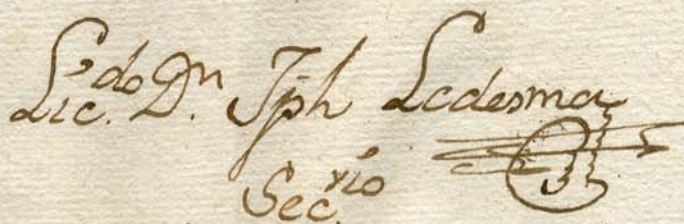 Lic.do Dn. Jph Ledesma
Sec.rio